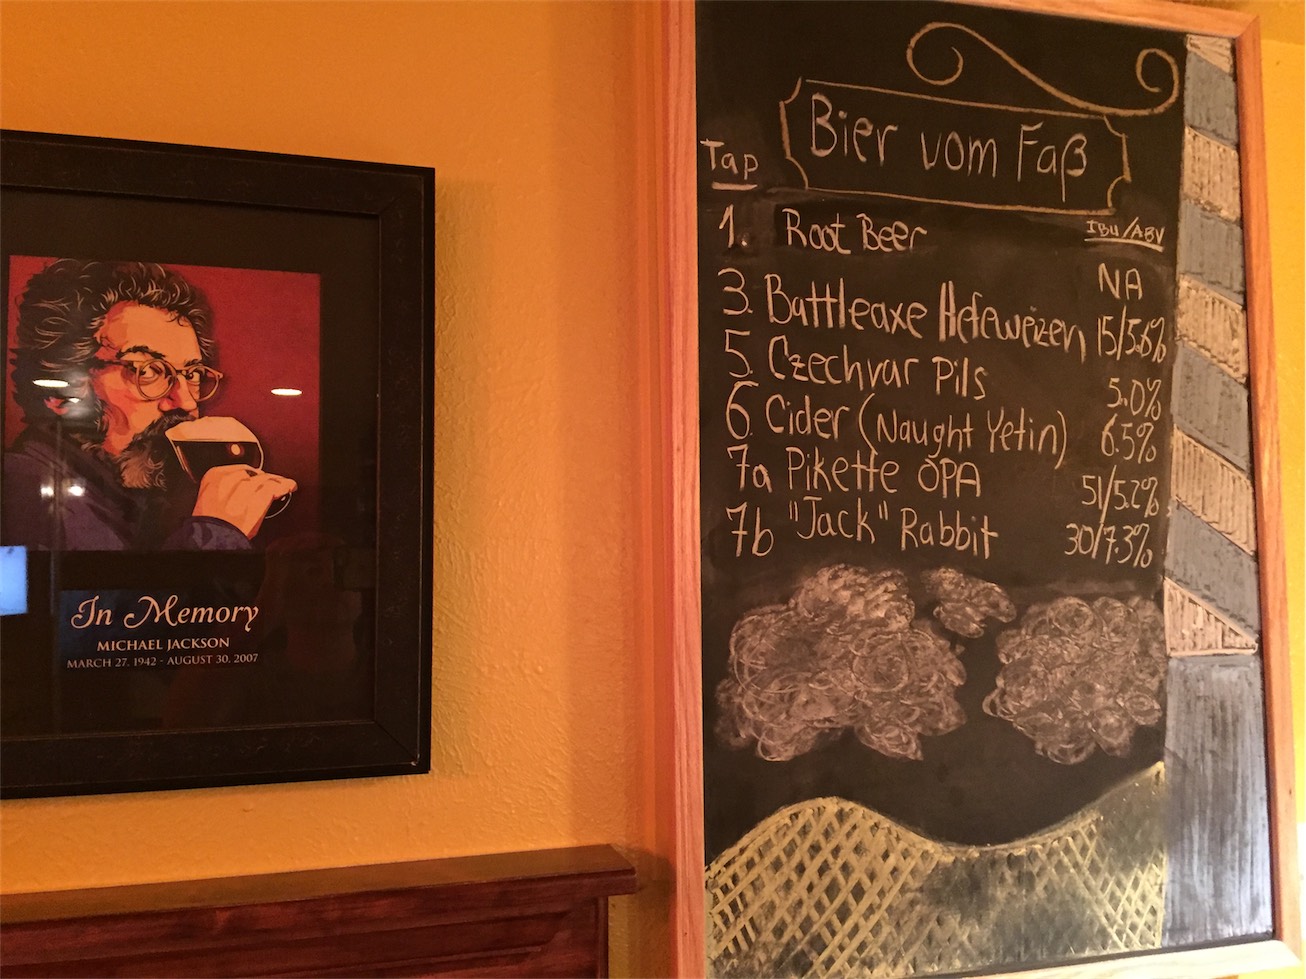 In Memory
MICHAEL JACKSON
MARCH 27. 1942 - AUGUST 30. 2007
Bier vom Faß
Tap
IBU/ABV
1. Root Beer NA
3. Battleaxe Hefeweizen 15/5.6%
5. Czechvar Pils 5.0%
6. Cider (Naught Yetin) 6.5%
7a Pikette OPA 51/5.2%
7b "Jack" Rabbit 30/7.3%